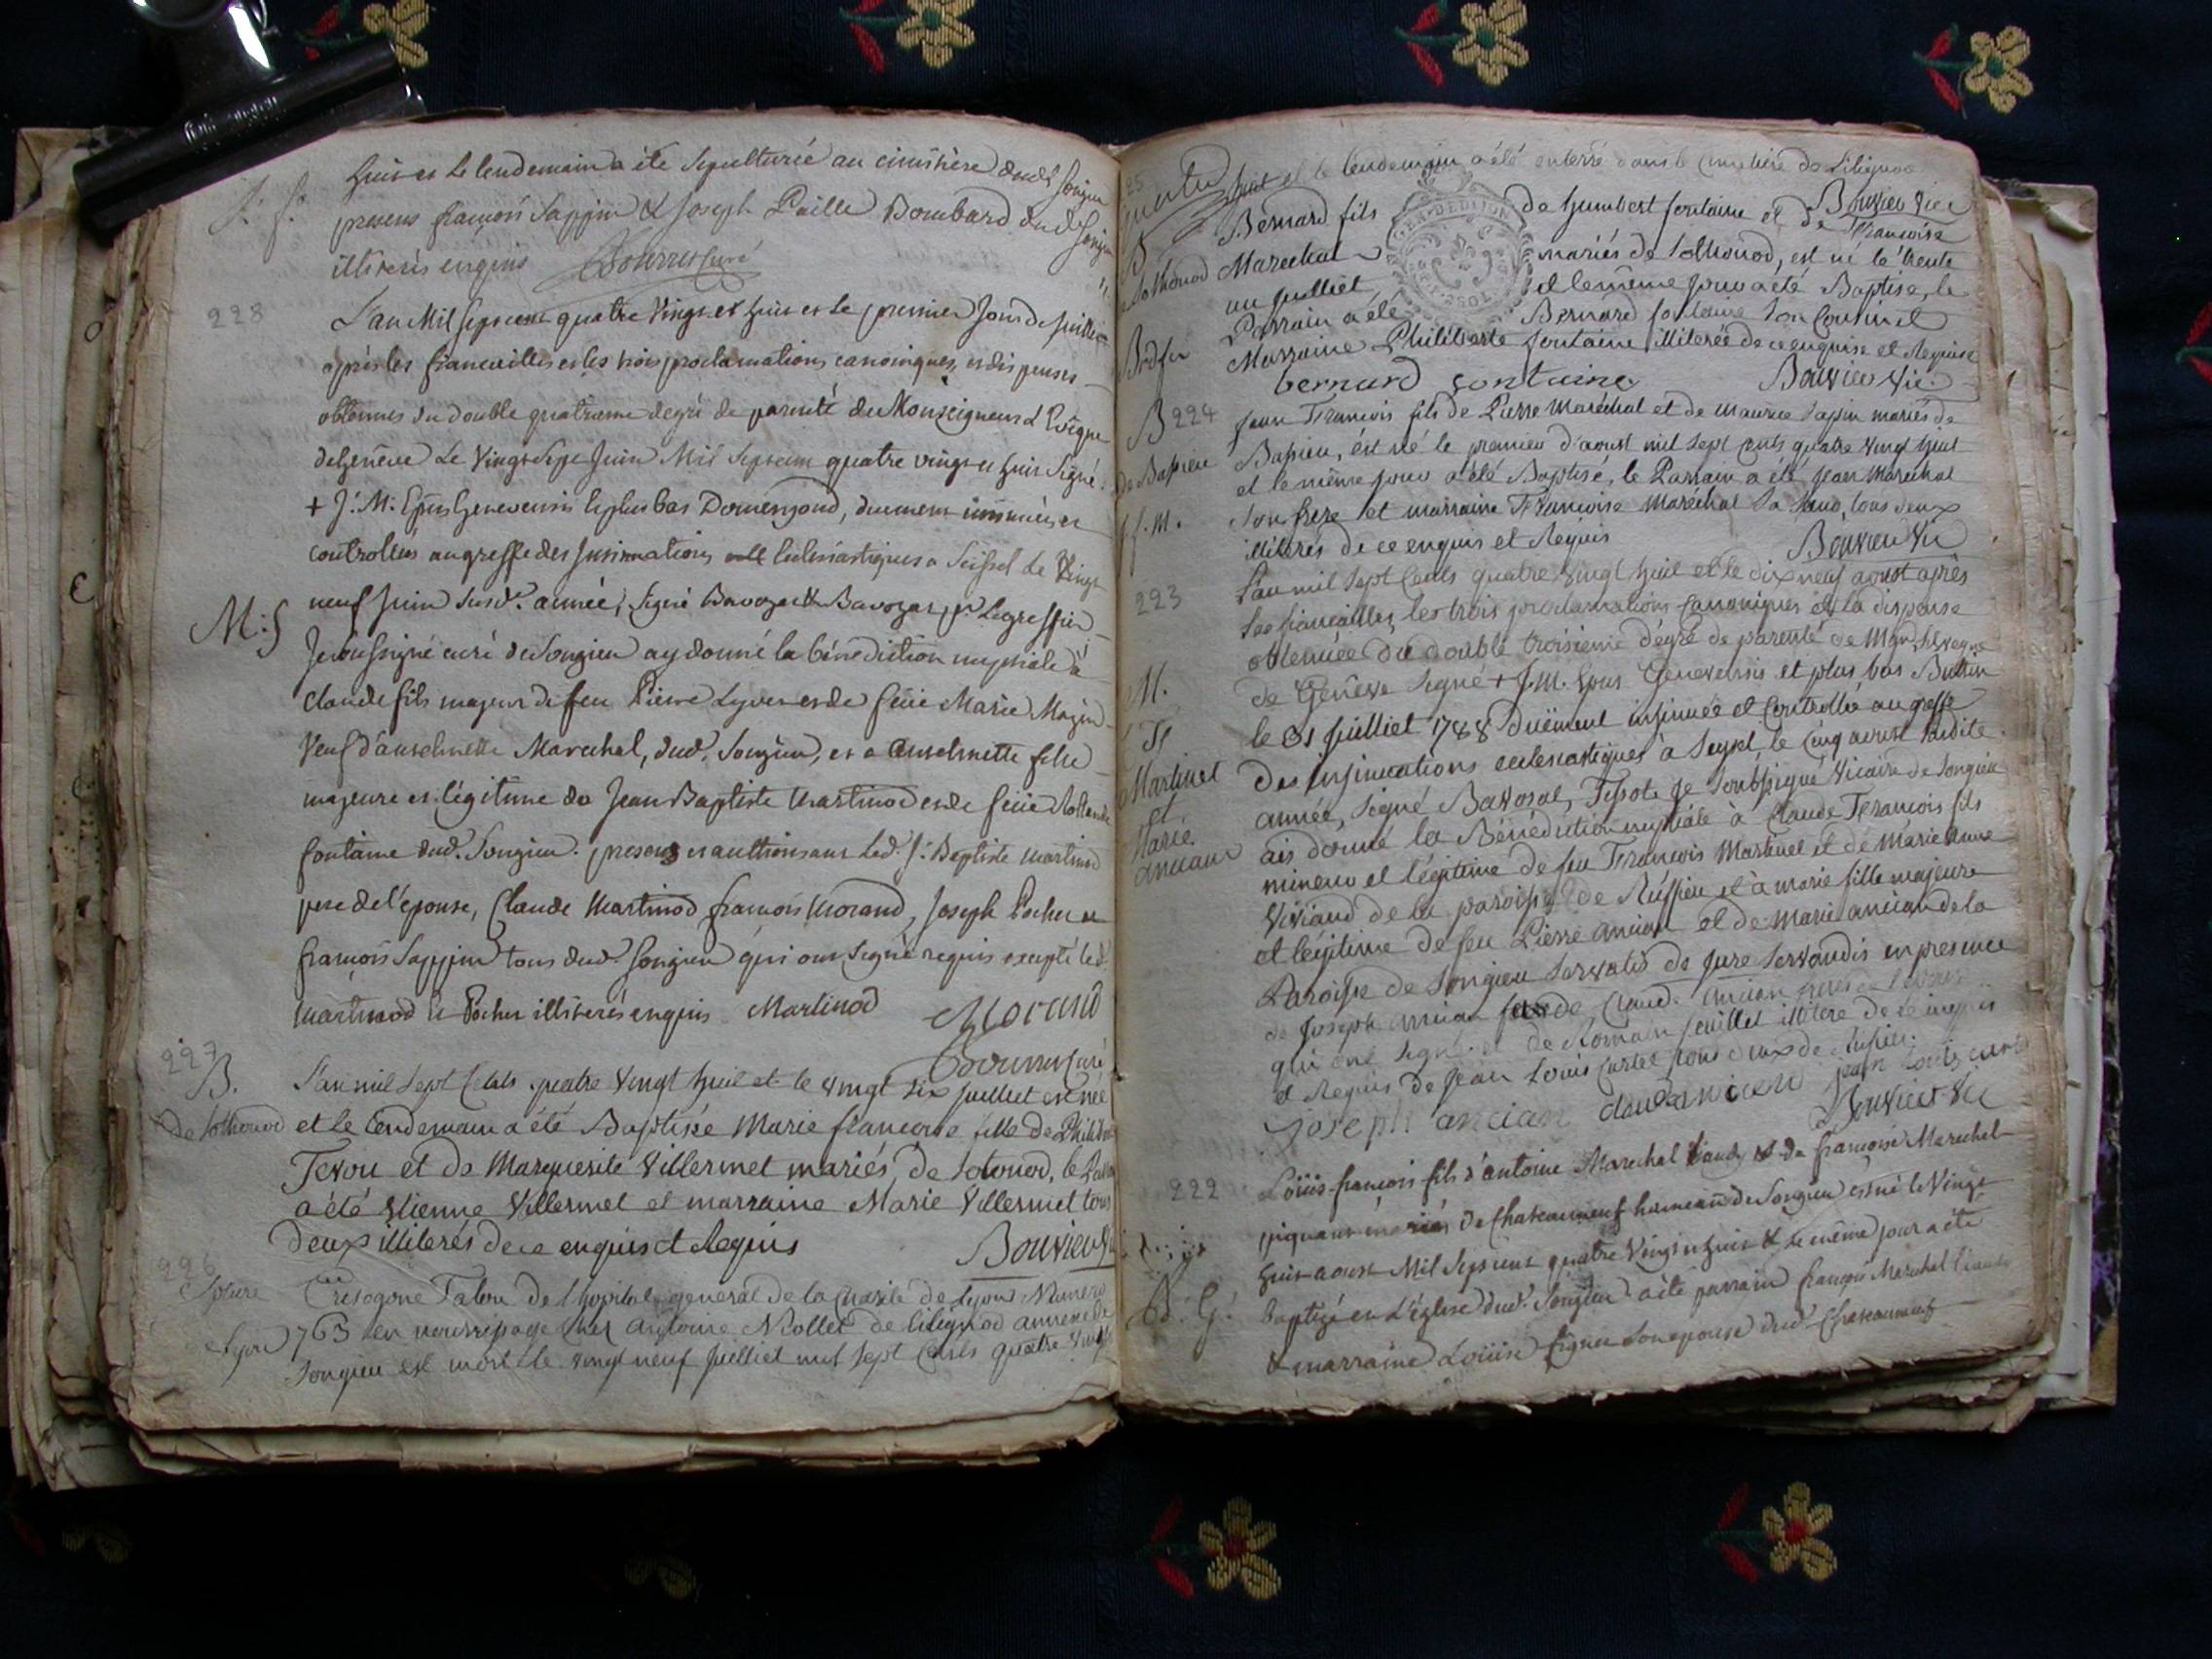 huit et le lendemain a été sepulturée au cimistière dud. Songieu
J. S.
presens françois Sappin & Joseph Paille Bombard dud. Songieu
illiterés enquis Bourrus Curé
228
L'an Mil sept cent quatre Vingt et huit et le premier Jour de Juillet
après les fiancailles et les trois proclamations canoniques, et dispenses
obtenues du double quatrieme degré de parenté de Monseigneur L'Evêque
de Genève Le Vingt Sept Juin Mil Sept cent quatre vingt et huit Signé
+ J. M. Epus Genevensis et plus bas Domengoud, duement insinuées et
controllées au greffe des Insinuations Eccleziastiques a Seissel Le Vingt
neuf Juin Susd. année, signé Bavozat & Bavozat Legreffier
M: S
Je soussigné curé de Songieu ay donné la bénédiction nuptiale à
Claude fils majeur de feu Pierre Lyvet et de feüe Marie
Veuf d'anselmette Marechal, dud. Songieu, et a Anselmette fille
majeure et légitime de Jean Baptiste Martinod et de feüe Rollande
fontaine dud. Songieu. presens et authorisant Led. J. Baptiste Martinod
pere de l'épouse, Claude Martinod françois Morand, Joseph Pocher et
françois Sappin tous dud. Songieu qui ont signé requis excepté led.
Martinod & Pocher illiterés enquis Martinod Morand
Bourrus Curé
227
B.
L'an mil sept Cents quatre Vingt huit et le vingt six juillet est née
de Sothonod et le lendemain a été Baptisée Marie francoise fille de Philibert
Tevou et de Marguerite Villermet mariés de Sotonod, le Parrain
a été Etienne Villermet et marraine Marie Villermet tous
deux illiterés de ce enquis et Requis Bouvier Vic
226
Spture Crisogone Talon de l'hopital general de la Charité de Lyon Numero
de Lyon 763 en nourrissage chez Antoine Nollet de Lilignod annexe de
Songieu est mort le vingt neuf Juilliet mil sept Cents quatre Vingt
225
huit et le lendemain a été enterré dans le cimetiere de Lilignod
Bouvier Vic
GEN. DE DIJON
B
Bernard fils de humbert fontaine et de Francoise
Sothonod Marechal mariés de Sothonod, est né le trente
un Juilliet et le même jour a été Baptisé, le
Parrain a été Bernard fontaine son Cousin et
Marraine Philiberte fontaine illiterée de ce enquise et Requise
bernard fontaine Bouvier Vic.
B 224
Jean Francois fils de Pierre Maréchal et de Maurice Sapin mariés de
de Bassieu Bassieu, est né le premier d'aoust mil sept cents quatre vingt huit
et le même jour a été Baptisé, le Parrain a été Jean Marechal
J. f. M.
Son frere et marraine Francoise Maréchal Sa Soeur, tous deux
illiterés de ce enquis et Requis Bouvier Vic
223
L'an mil sept Cents quatre Vingt huit et le dix neuf aoust après
les fiancailles, les trois proclamations Canoniques et la dispense
obtenuée du double troisieme dégré de parenté de Mgr L'Eveque
M.
de Genêve Signé + J. M. Epus Genevensis et plus bas
le 31 Juilliet 1788 Duëment insinuée et Controllée au greffe
Martinet
des insinuations eclesiastiques à Seyssel, le Cinq aoust Susdite
et
année, signé Bavosat, Tissot. Je Soubsigné Vicaire de Songieu
Marie
Ancian
ais donné la Bénédiction nuptiale à Claude Francois fils
mineur et légitime de feu Francois Martinet et de Marie Anne
Viviand de la paroisse de Ruffieu et à Marie fille majeure
et légitime de feu Pierre Ancian et de Marie ancian de la
Paroisse de Songieu Servatis de Jure Servandis en presence
de Joseph Ancian de Claude Ancian freres de l'epouse
qui ont signé et de Romain illiteré de ce enquis
et Requis de Jean Louis Cartet tous deux de Ruffieu.
joseph ancian claude ancian jean Louis cartet
Bouvier Vic
222
Loüis-françois fils d'antoine Marechal & de françoise Marechal
mariés de Chateauneuf hameau de Songieu est né le Vingt
huit aoust Mil Sept cent quatre Vingt et huit & le même jour a été
B. G.
Baptizé en L'église dud. Songieu a été parrain françois Marechal
& marraine Loüise son epouse dud. Chateauneuf